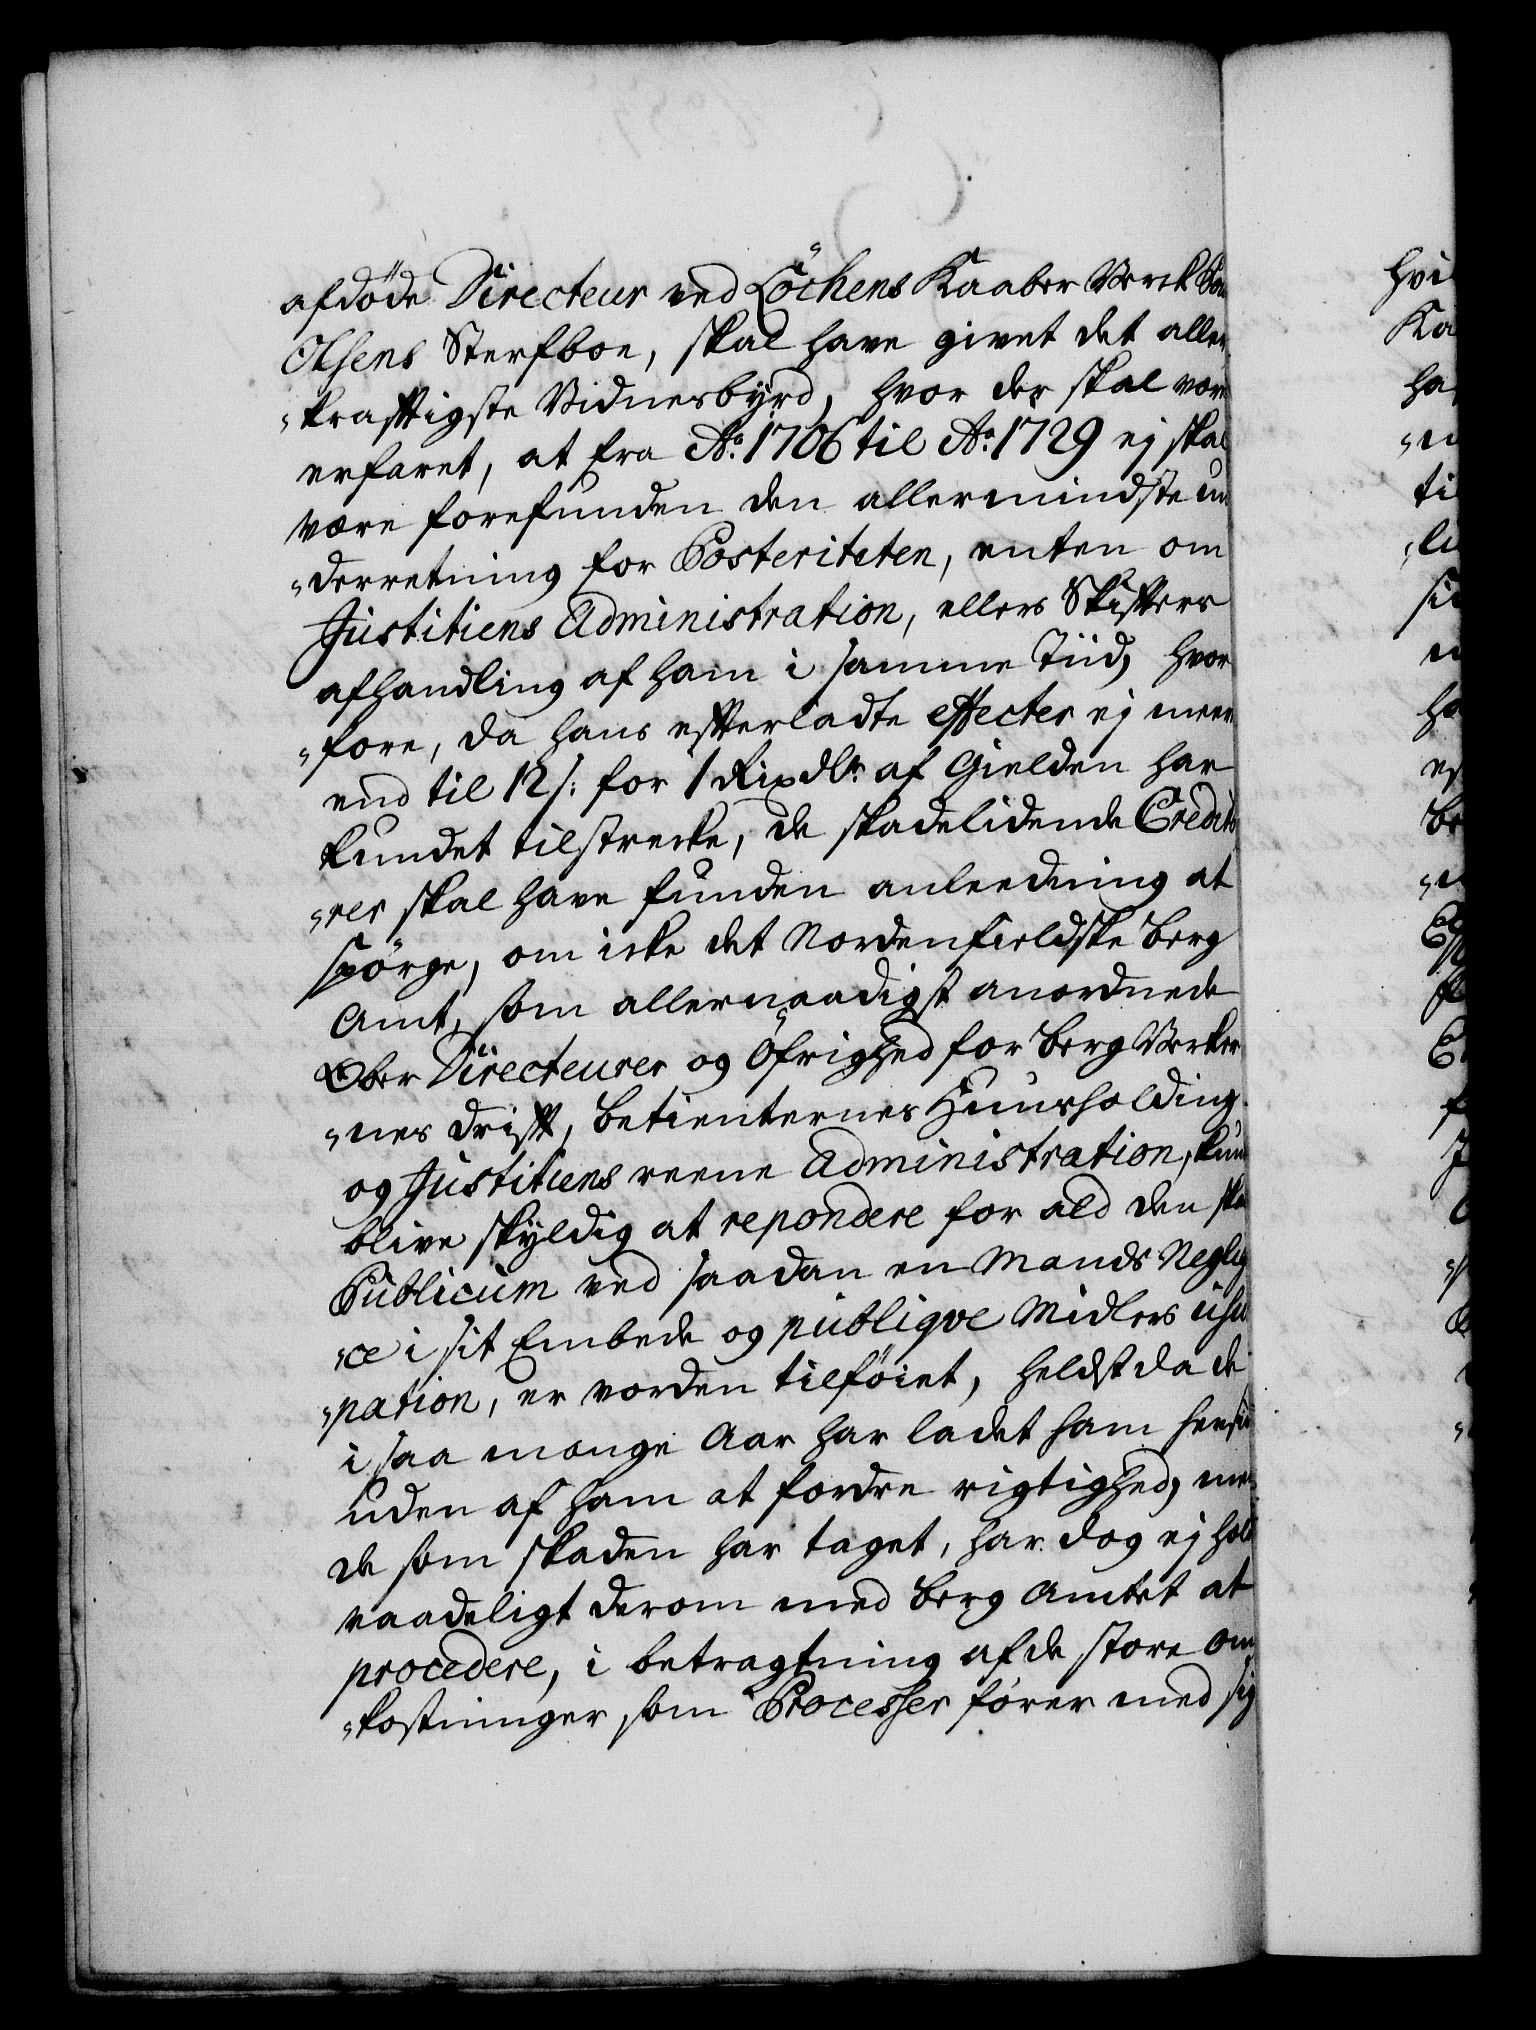 afdøde Directeur ved Löchens Kaaber Verck
Olsens Sterfboe, skal have givet det aller
„kraftigste Vidnesbÿrd, hvor der skal vær
erfaret, at fra Ao: 1706 til Ao: 1729 ej skal
være forefunden den allermindste un
„derretning for Posteriteten, enten om
Justitiens Administration, ellers Skifters
afhandling af ham i samme Tiid, hvor
„fore, da hans efterladte effecter ej meer
end til 12 s: for 1 Rixdlr. af Gielden har
kundet tilstrecke, de skadelidende Credito
„rer skal have funden anleedning at
spörge, om icke det Nordenfieldske Berg
Amt, som allernaadigst anordnede
Ober Directeurer og Öfrighed for Berg Vercker
„nes drift, betienternes Huusholding
og Justitiens reene Administration, kun
blive skÿldig at repondere for ald den ska
Publicum ved saadan en Mands Neglig
„ce i sit Embede og publiqve Midlers usu
„pation, er vorden tilföiet, heldst da de
i saa mange Aar har ladet ham hensid
uden af ham at fordre rigtighed, men
de som skaden har taget, har dog ej hold
raadeligt derom med Berg Amtet at
procedere, i betragtning af de store Om
„kostninger, som Processer förer med sig